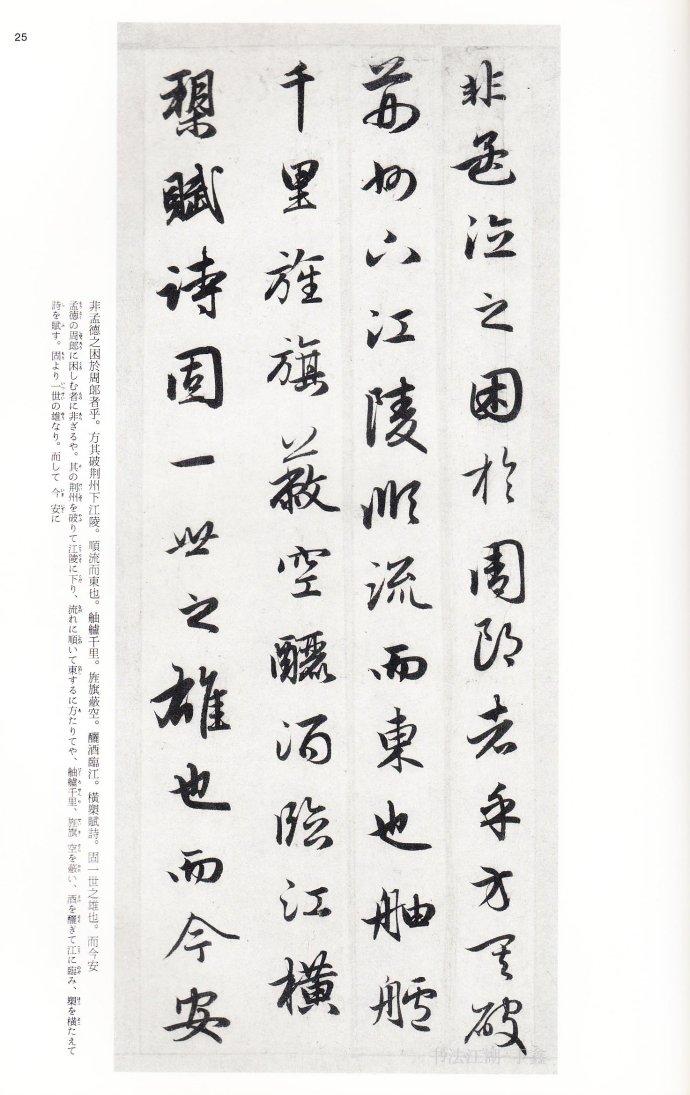 25
非孟德之困於周郎者乎方其破
荊州下江陵順流而東也舳艫
千里旌旗蔽空釃酒臨江橫
槊賦詩固一世之雄也而今安
非孟德之困於周郎者乎。方其破荆州下江陵。順流而東也。舳艫千里。旌旗蔽空。釃酒臨江。橫槊賦詩。固一世之雄也。而今安
孟德の周郎に困しむ者に非ざるや。其の荆州を破りて江陵に下り、流れに順いて東するに方たりてや、舳艫千里、旌旗 空を蔽い、酒を釃ぎて江に臨み、槊を橫たえて
詩を賦す。固より一世の雄なり。而して 今 安に